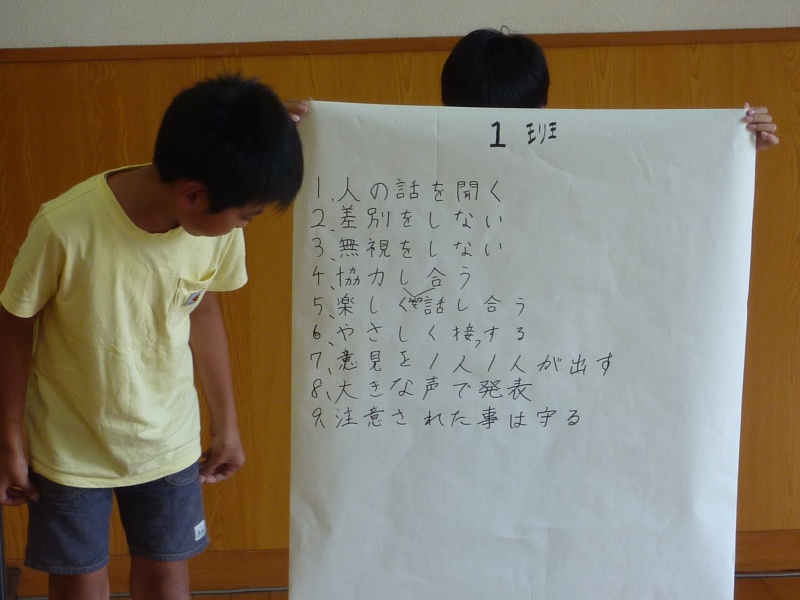 1 班
1、人の話を聞く
2、差別をしない
3、無視をしない
4、協力し合う
5、楽しく話し合う
6、やさしく接する
7、意見を1人1人が出す
8、大きな声で発表
9、注意された事は守る